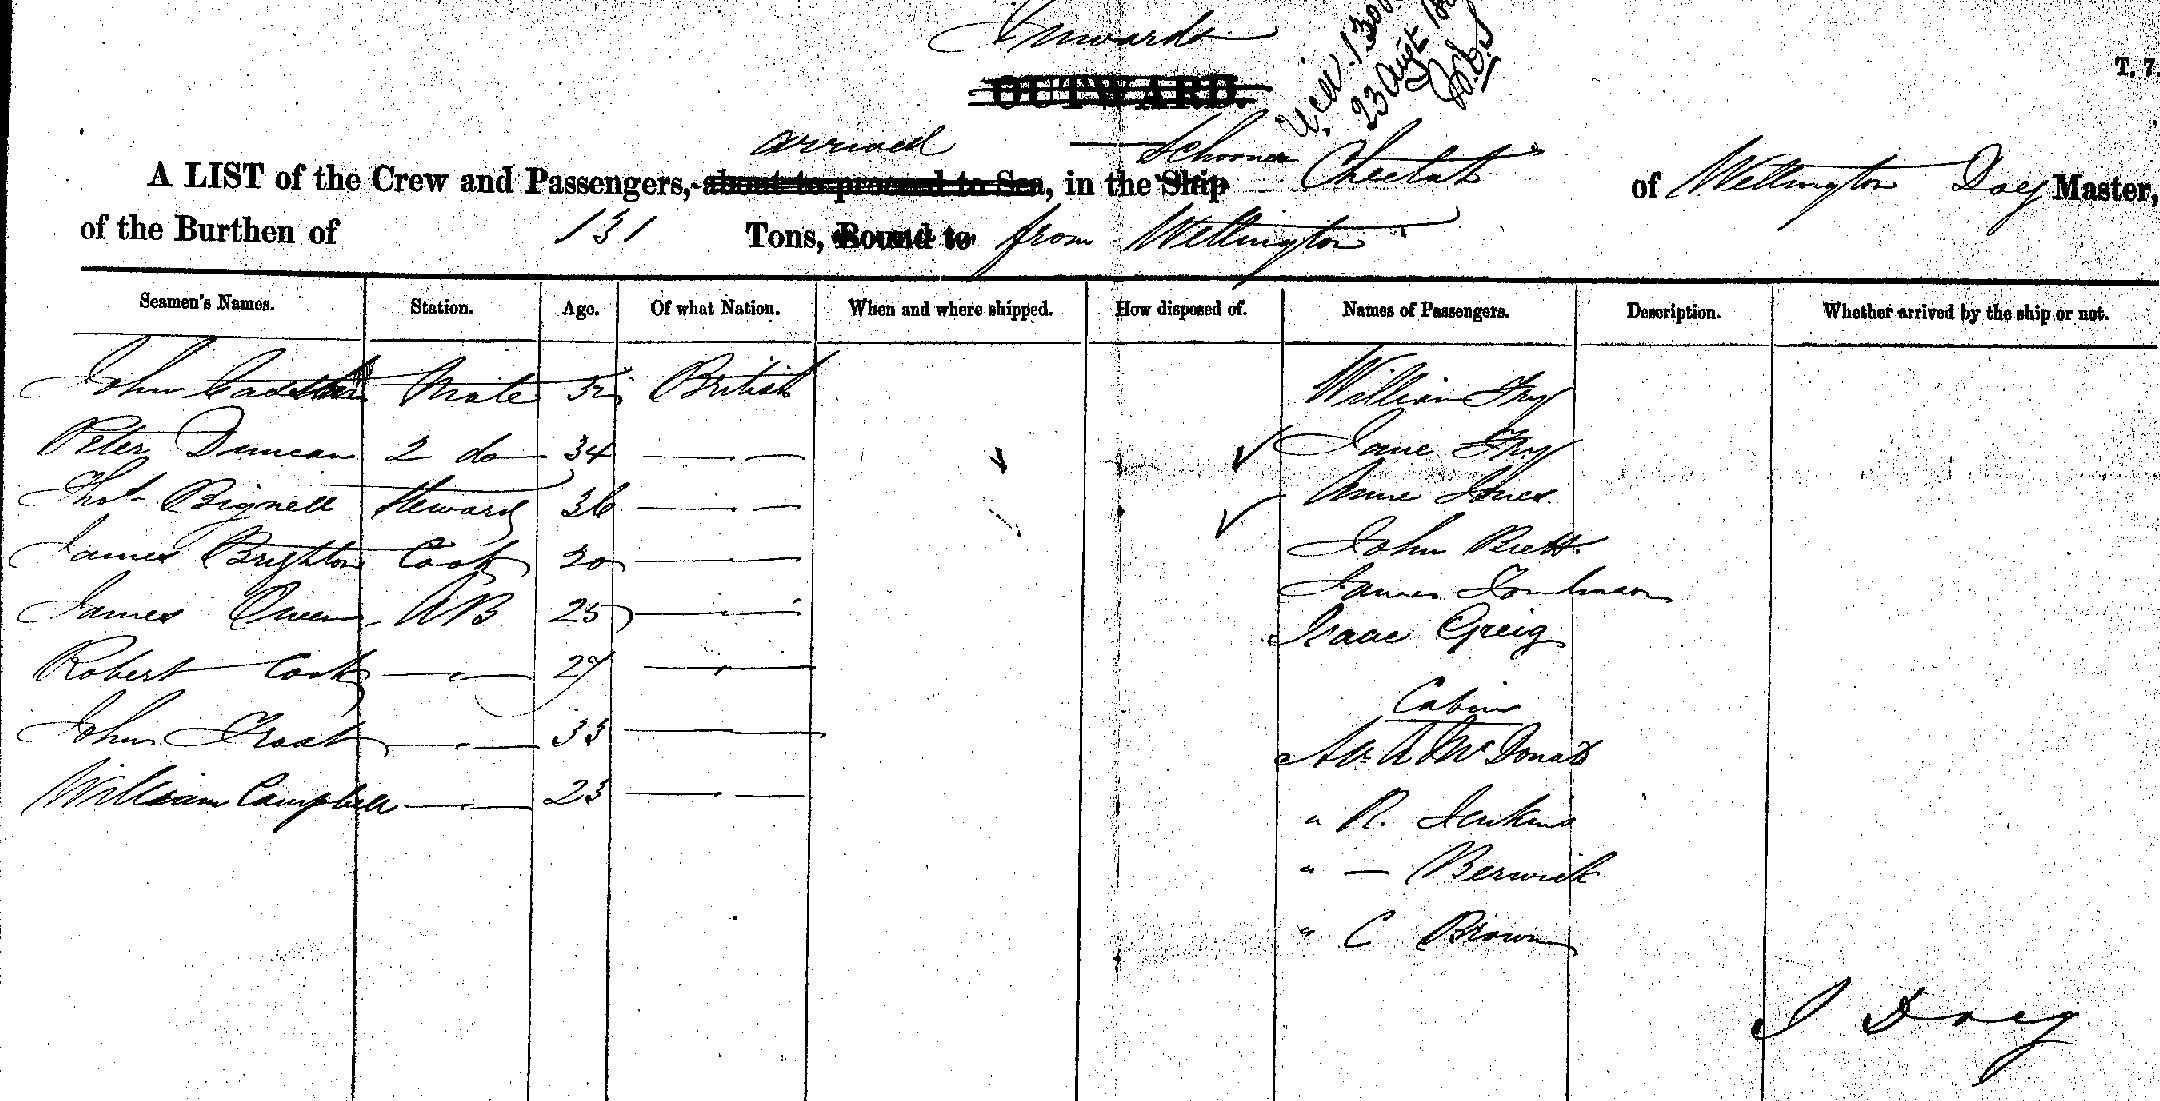 Inwards
OUTWARD.
23 Augt
T. 7.
arrived Schooner
A LIST of the Crew and Passengers, about to proceed to Sea, in the Ship Cheetah of Wellington Doig Master,
of the Burthen of 131 Tons, Bound to from Wellington
Seamen's Names. Station. Age. Of what Nation. When and where shipped. How disposed of. Names of Passengers. Description. Whether arrived by the ship or not.
John Mate British William
Peter Duncan 2 do 34 Jane
Thos Bignell Steward 36 Anne Jones
James Brighton Cook 20 John Brett
James Owen AB 25 James
Isaac Greig
Robert Cook 27
Cabin
John 33 McDonald
William Campbell 23
" R. Jenkins
" — Berwick
" C Brown
J Doig